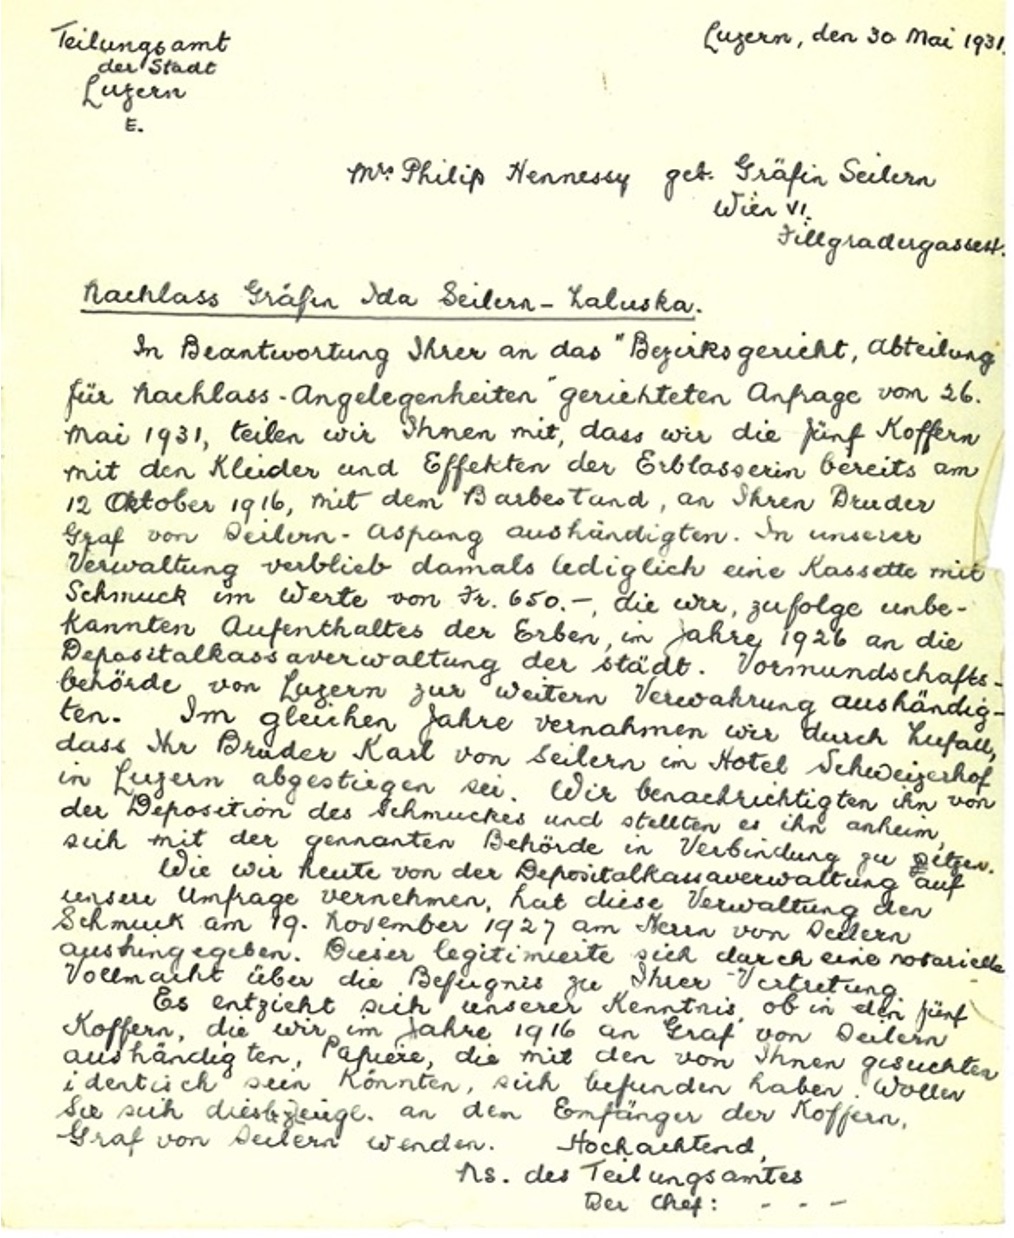 Teilungsamt
der Stadt
Luzern
E.
Luzern, den 30 Mai 1931.
Mrs Philip Hennessy geb. Gräfin Seilern
Wien VI.
Fillgradergasse
Nachlass Gräfin Ida Seilern-Zaluska.
In Beantwortung Ihrer an das "Bezirksgericht, Abteilung
für Nachlass-Angelegenheiten" gerichteten Anfrage vom 26.
Mai 1931, teilen wir Ihnen mit, dass wir die fünf Koffern
mit den Kleider und Effekten der Erblasserin bereits am
12 Oktober 1916, mit dem Barbestand, an Ihren Bruder
Graf von Seilern-Aspang aushändigten. In unserer
Verwaltung verblieb damals lediglich eine Kassette mit
Schmuck im Werte von Fr. 650.-, die wir, zufolge unbe-
kannten Aufenthaltes der Erben, im Jahre 1926 an die
Depositalkassaverwaltung der städt. Vormundschafts-
behörde von Luzern zur weitern Verwahrung aushändig-
ten. Im gleichen Jahre vernahmen wir durch Zufall,
dass Ihr Bruder Karl von Seilern im Hotel Schweizerhof
in Luzern abgestiegen sei. Wir benachrichtigten ihn von
der Deposition des Schmuckes und stellten es ihn anheim,
sich mit der gennanten Behörde in Verbindung zu setzen.
Wie wir heute von der Depositalkassaverwaltung auf
unsere Umfrage vernehmen, hat diese Verwaltung den
Schmuck am 19. November 1927 am Herrn von Seilern
aushingegeben. Dieser legitimierte sich durch eine notarielle
Vollmacht über die Befugnis zu Ihrer Vertretung
Es entzieht sich unserer Kenntnis, ob in den fünf
Koffern, die wir im Jahre 1916 an Graf von Seilern
aushändigten, Papiere, die mit den von Ihnen gesuchten
identisch sein könnten, sich befunden haben. Wollen
Sie sich diesbezeigl. an dem Empfänger der Koffern,
Graf von Seilern wenden. Hochachtend,
Ns. des Teilungsamtes
Der Chef: - - -